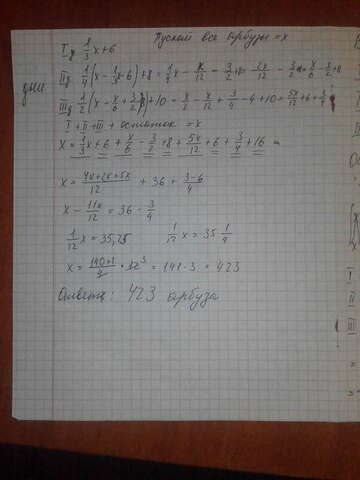 Пусть все арбузы = x
I д 1/3 x + 6
II д 1/4 (x - 1/3 x - 6) + 8 = 1/4 x - x/12 - 3/2 + 8 = 2x/12 - 3/2 + 8 = x/6 - 3/2 + 8
дни
III д 1/2 (x - x/6 + 3/2) + 10 = x/2 - x/12 + 3/4 - 4 + 10 = 5x/12 + 6 + 3/4
I + II + III + остаток = x
x = 1/3 x + 6 + x/6 - 3/2 + 8 + 5x/12 + 6 + 3/4 + 16
x = (4x+2x+5x)/12 + 36 + (3-6)/4
x - 11x/12 = 36 - 3/4
1/12 x = 35,25 1/12 x = 35 1/4
x = (140+1)/4 · 12 3 = 141 · 3 = 423
Ответ: 423 арбуза